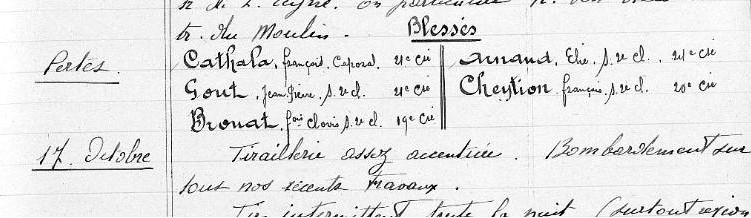 tr. du Moulin.
Blessés
Pertes.
Cathala, françois, Caporal, 21e Cie
Arnaud, Elie, S. 2e cl., 24e Cie
Gout, Jean Pierre, S. 2e cl. 21e Cie
Cheytion françois, S. 2e cl. 20e Cie
Brouat, fois Clovis, S. 2e cl. 19e Cie
17. Octobre
Tiraillerie assez accentuée. Bombardement sur
tous nos récents travaux.
Tir intermittent toute la nuit (surtout